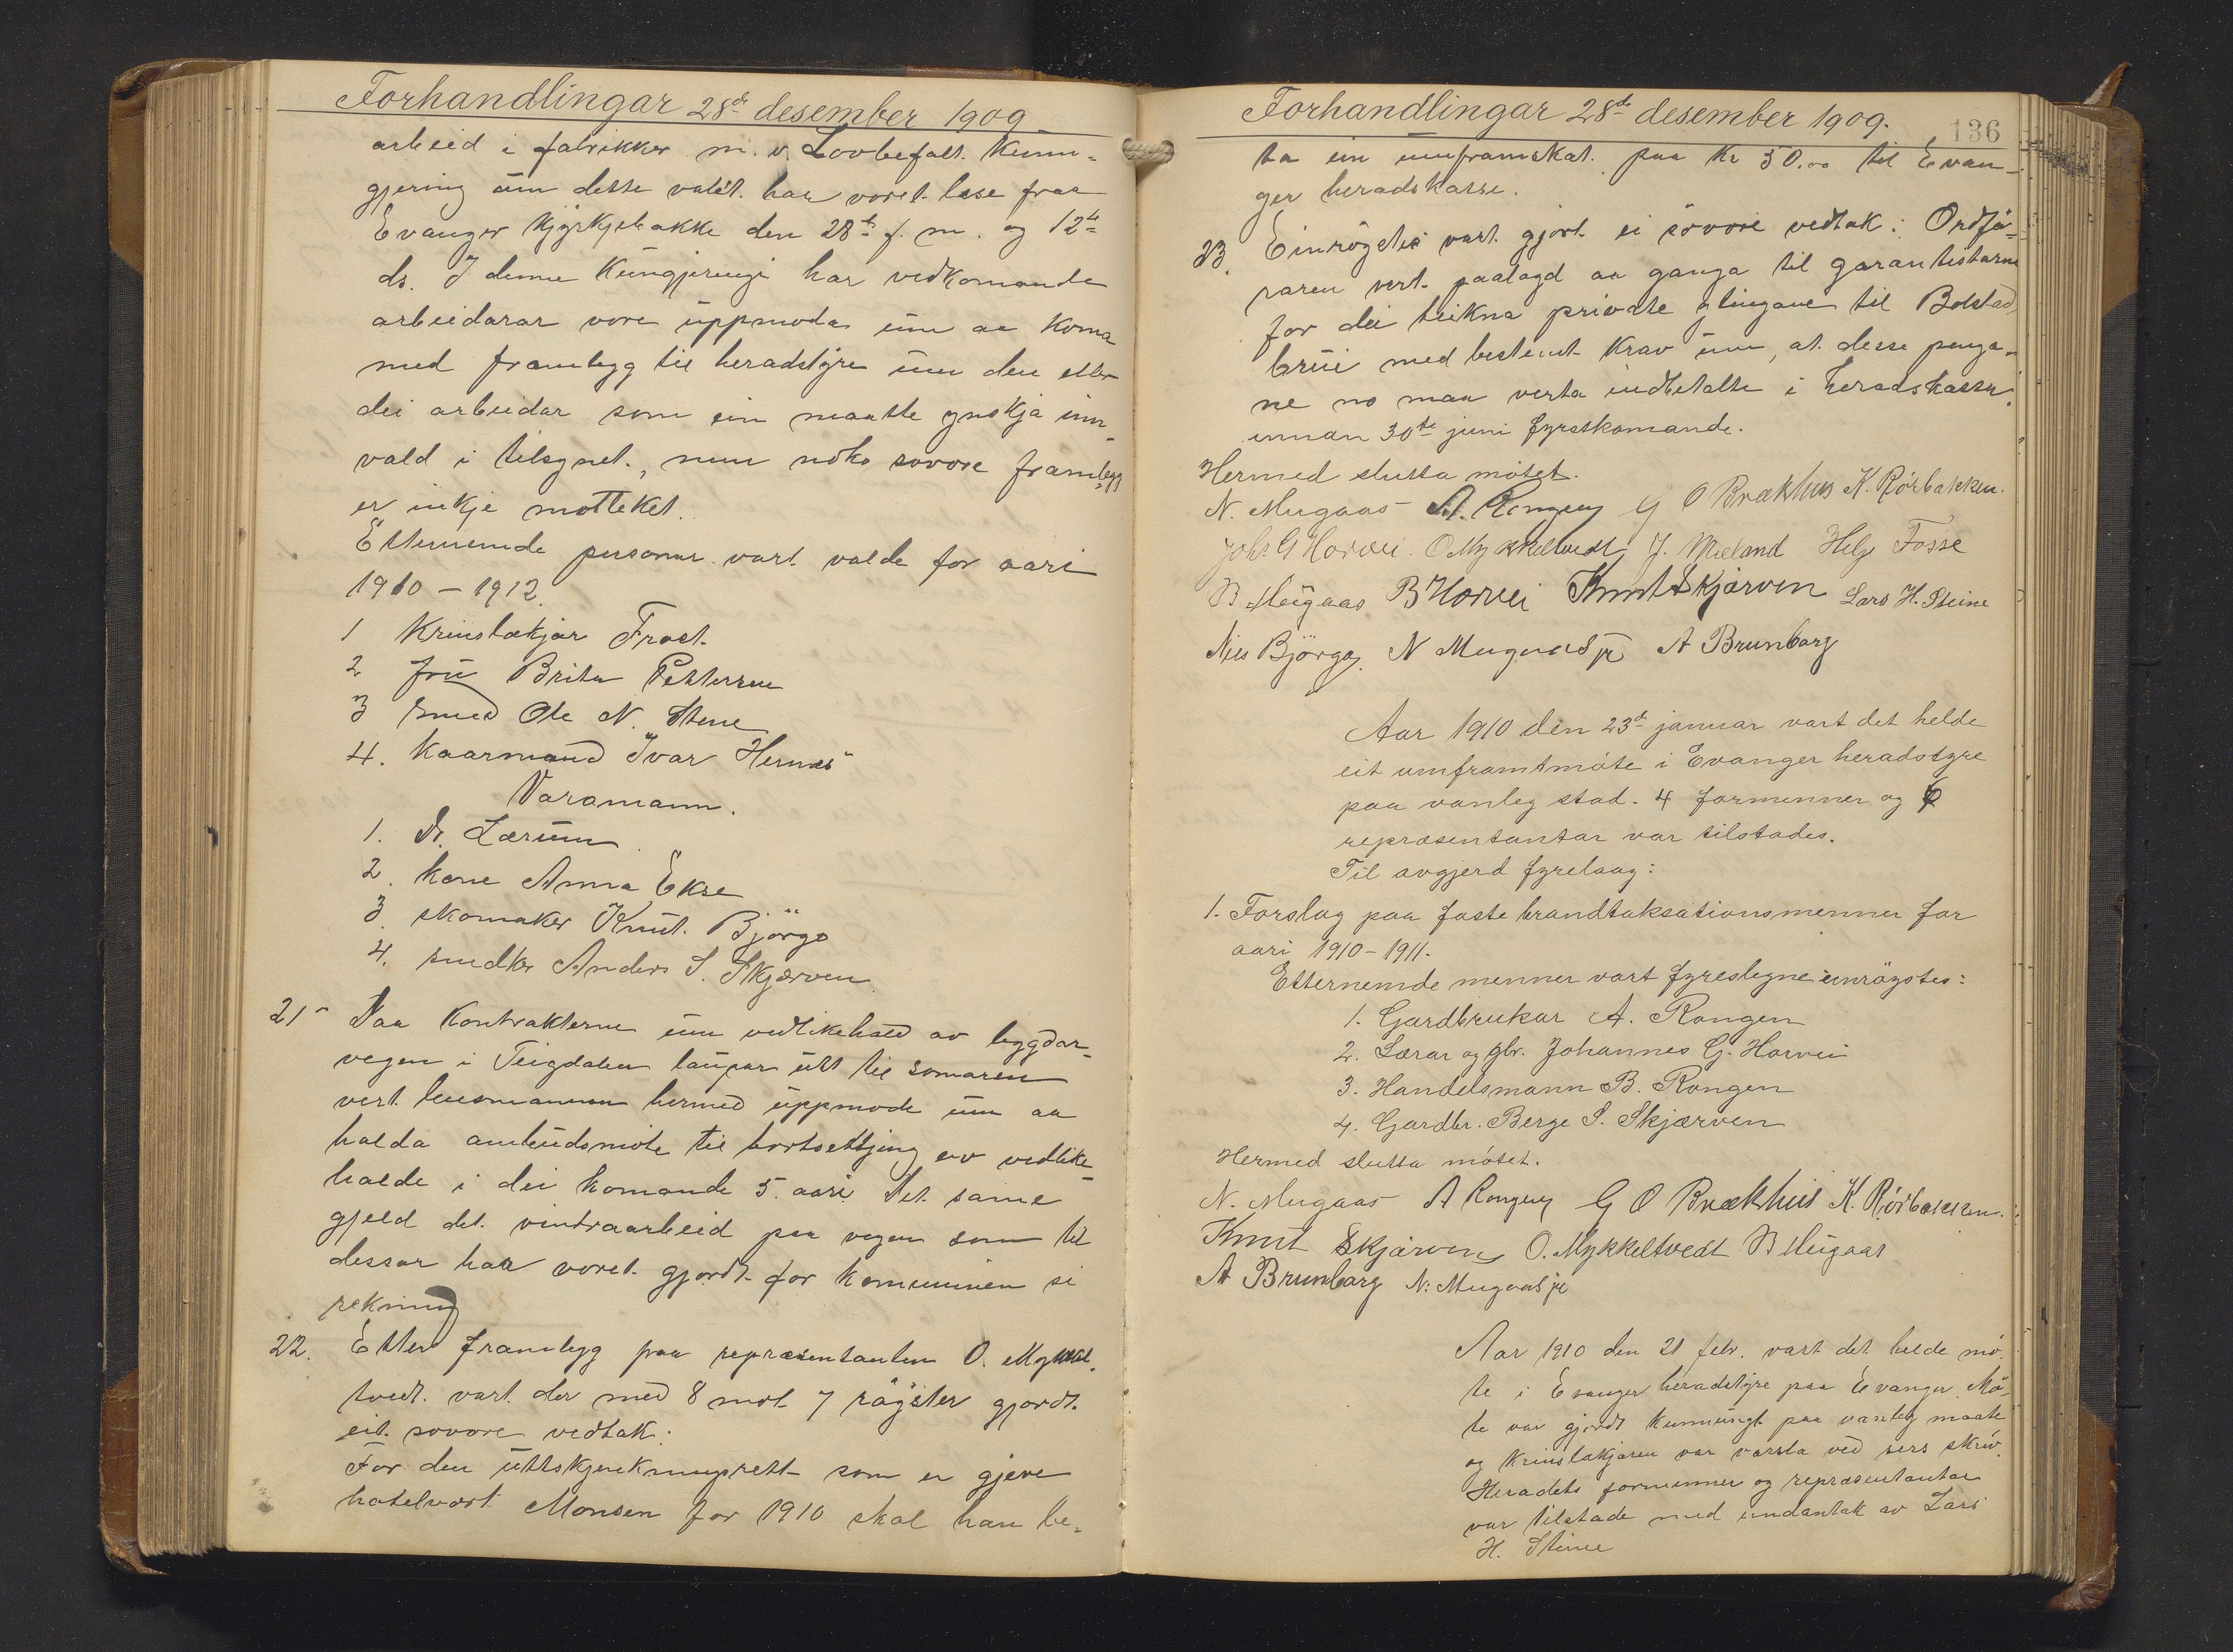 Forhandlingar 28de desember 1909
arbeid i fabrikker m. v. Lovbefalt. Kunn-
gjering um dette valet har voret lese fraa
Evanger kjyrkjebakke den 28de f. m. og 12te
ds. I denne kungjeringi har vedkomande
arbeidarar vore uppmoda um aa koma
med framlegg til heradstyre um den eller
dei arbeidar som ein maatte ynskja inn-
vald i tilsynet, men noko sovore framlegg
er inkje motteket.
Etternemde personar vart valde for aari
1910 – 1912.
1 Krinslækjar Frost.
2 fru Brita Pettersen
3 smed Ole N. Stene
4. kaarmand Ivar Hernes
Varamann.
1. Dr. Lærum
2. kone Anna Ekse
3. skomaker Knut Björgo
4. snedker Anders S. Skjerven
21 Daa kontrakterne um vedlikehald av bygdar-
vegen i Teigdalen laupar utt til somaren
vert lensmannen hermed uppmode um aa
halda anbudsmöte til bortsettjing av vedlike-
halde i dei komande 5 aari. Det same
gjeld det vintraarbeid paa vegen som til
dessar har voret gjordt for komunnen si
rekning
22. Etter framlegg fraa repræsentanten O. Mykkel-
tvedt vart der med 8 mot 7 röyster gjordt
eit sovore vedtak:
For den uttskjenkningsrett som er gjeve
hotelvært Monsen for 1910 skal han be-
Forhandlingar 28de desember 1909.
136
ta ein umframskat paa kr 50.00 til Evan-
ger heradskasse.
23. Einröystes vart gjort ei sovore vedtak: Ordfö-
raren vert paalagd aa ganga til garantistarne
for dei teikna private tilingane til Bolstad
brui med bestemt krav um, at desse penga-
ne no maa verta indbetalte i heradskassen
innan 30te juni fyrstkomande.
Hermed slutta mötet.
N. Mugaas A. Rongen G O Brækhus K. Rörbakken.
Johs G Horvei. O Mykkeltvedt J. Mæland Helge Fosse
B Mugaas B Horvei Knut Skjerven Lars H. Steine
Nils Björgo. N Mugaas jr A Brunborg
Aar 1910 den 23de januar vart det helde
eit umframtmöte i Evanger heradstyre
paa vanleg stad. 4 formenner og
repræsentantar var tilstades.
Til avgjerd fyrelaag:
1. Forslag paa faste brandtaksationsmenner for
aari 1910 – 1911.
Etternemde menner vart fyreslegne einröystes:
1. Gardbrukar A. Rongen
2. Lærar og gbr. Johannes G. Horvei
3. Handelsmann B. Rongen
4. Gardbr. Berge S. Skjærven
Hermed slutta mötet.
N. Mugaas A Rongen G O Brækhus K. Rörbakken.
Knut Skjerven O. Mykkeltvedt B Mugaas
A Brunborg N. Mugaas jr
Aar 1910 den 21 febr. vart det helde mö-
te i Evanger heradstyre paa Evanger. Mö-
te var gjordt kunnungt paa vanleg maate
og Krinslækjaren var varsla ved sers skriv.
Heradets formenner og repræsentantar
var tilstade med undantak av Lars
H. Steine